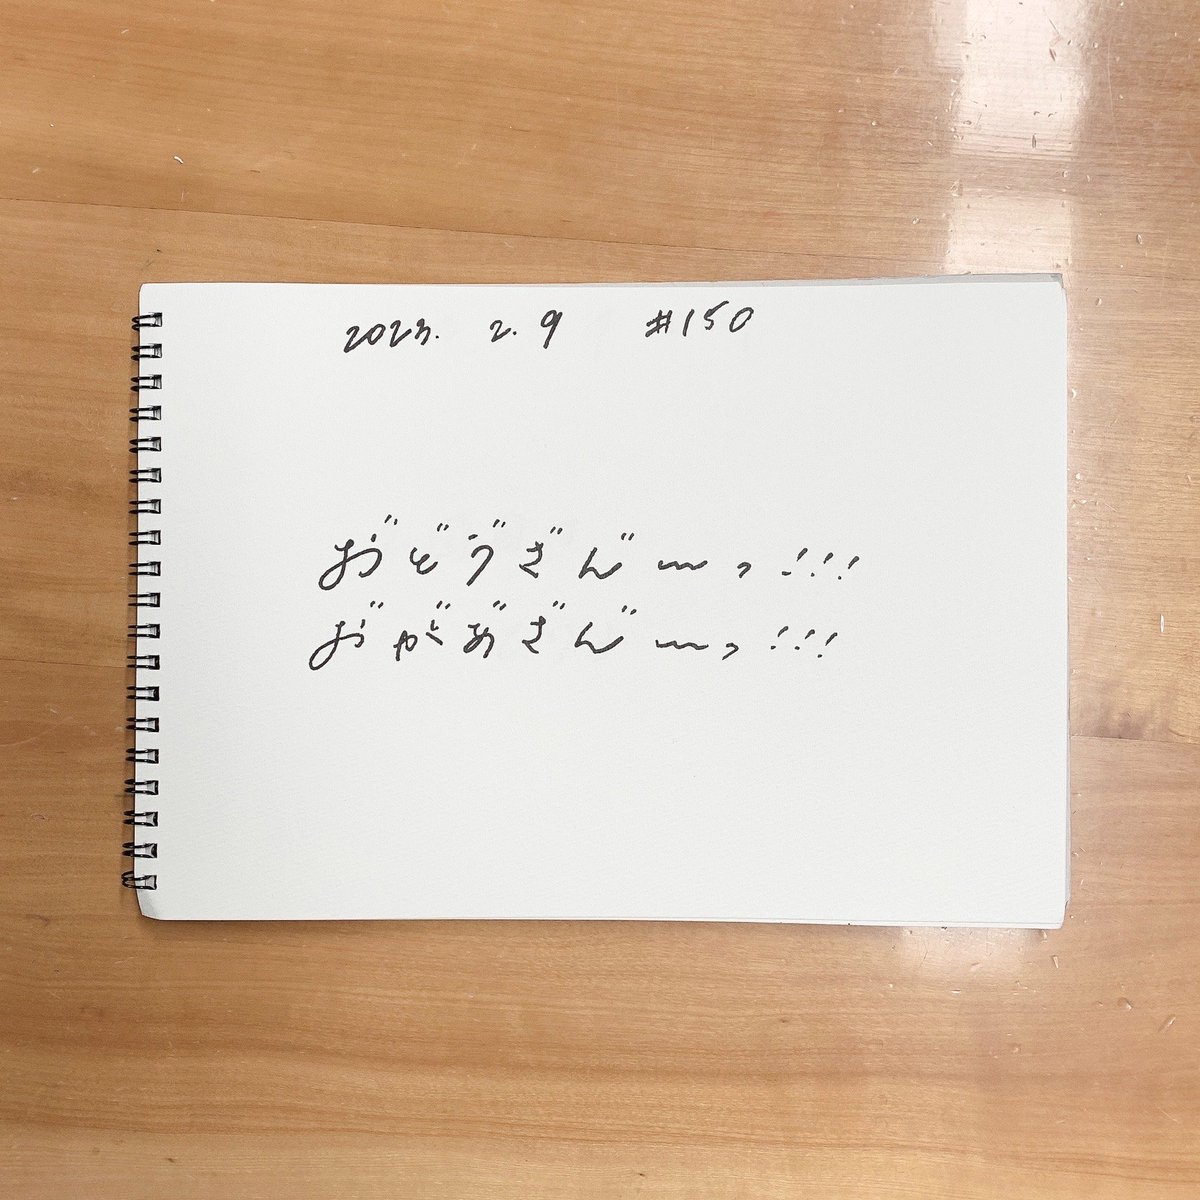 2023. 2. 9 #150
お゛どゔざん゛〜っ!!!
お゛があ゛ざん゛〜っ!!!